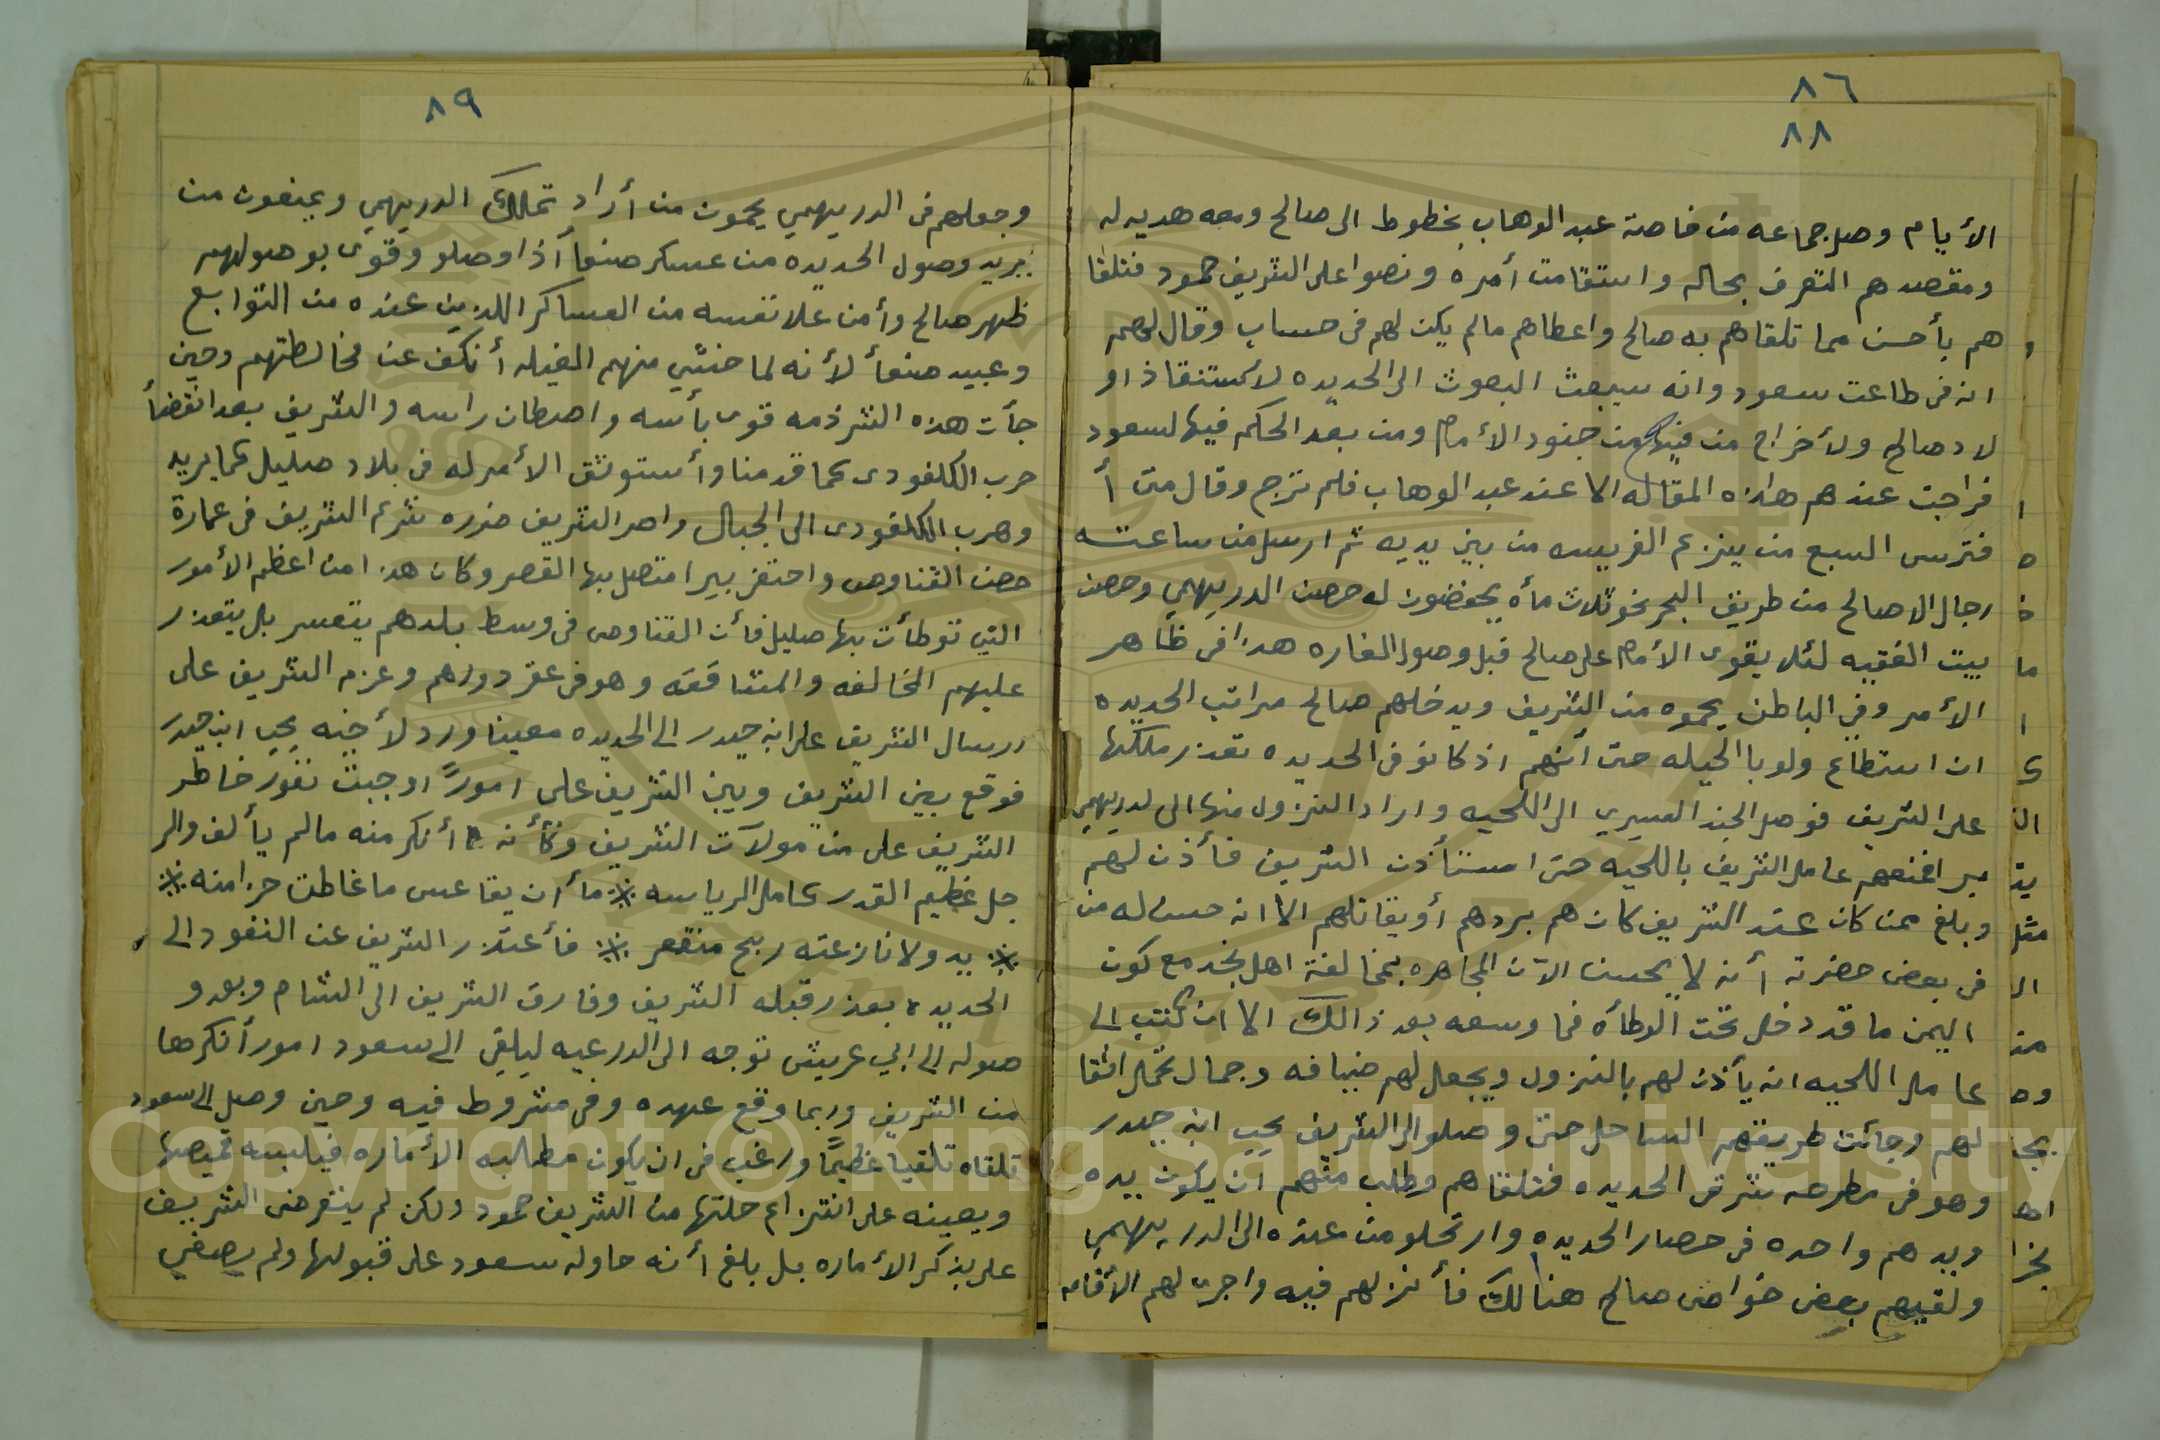 ٨٦
٨٨
الأيام وصل جماعه من خاصة عبد الوهاب بخطوط الى صالح ومعه هديه له
ومقصدهم التعرف بحاله واستقامت أمره ونصوا على الشريف حمود فتلقا
هم بأحسن مما تلقاهم به صالح واعطاهم مالم يكن لهم في حساب وقال لهم
انه في طاعت سعود وانه سيبعث البعوث الى الحديده لاستنقاذ او
لاد صالح ولأخراج من فيها من جنود الأمام ومن بعد الحكم فيها لسعود
فراجت عندهم هاذه المقاله الا عند عبد الوهاب فلم ترج وقال متى أ
فترس السبع من ينزع الفريسه من بين يديه ثم ارسل من ساعته
رجال الا صالح من طريق البحر نحو ثلاث مأه يحفضون له حصن الدريهمي وحصن
بيت الفقيه لئلا يقوى الأمام على صالح قبل وصول المغاره هذا في ظاهر
الأمر وفي الباطن يحموه من الشريف ويدخلهم صالح مراتب الحديده
ان استطاع ولو با الحيله حتى أنهم اذ كانو في الحديده تعذر ملكها
على الشريف فوصل الجند العسيري الى اللحيه واراد النزول منها الى لدريهمي
بر افمنعهم عامل الشريف باللحيه حتى استأذن الشريف فأذن لهم
وبلغ ممن كان عند الشريف كان هم بردهم أو يقاتلهم الا انه حسن له من
في بعض حضرته أنه لا يحسن الآن المجاهره بمخالفة اهل نجد مع كون
اليمن ما قد دخل تحت الوطأه فما وسعه بعد ذالك الا ان كتب الى
عامل اللحيه انه يأذن لهم بالنزول ويجعل لهم ضيافه وجمال تحمل اثقا
لهم وجائت طريقهم الساحل حتى وصلو الى الشريف يحيى ابن حيدر
وهو في مطرحه شرقي الحديده فتلقاهم وطلب منهم ان يكون بيده
ويدهم واحده في حصار الحديده وارتحلو من عنده الى الدريهمي
ولقيهم بعض خواص صالح هنالك فأنزلهم فيه واجرى لهم الأقامه
٨٩
وجعلهم في الدريهمي يحمون من أراد تملك الدريهمي ويمنعون من
يريد وصول الحديده من عسكر صنعا أذا وصلو وقوى بوصولهم
ظهر صالح وأمن علا نفسه من العساكر اللذين عنده من التوابع
وعبيد صنعأ لأنه لما خشي منهم الغيله أنكف عن مخالطتهم وحين
جأت هذه الشرذمه قوى بأسه واصطان راسه والشريف بعد انقضأ
حرب الكلفودى كما قدمنا وأستوثق الأمر له في بلاد صليل كما يريد
وهرب الكلفودى الى الجبال وامر الشريف ضرره شرع الشريف في عمارة
حصن القناوص واحتفر بيرا متصل بها القصر وكان هذا من اعظم الأمور
التي توطأت بها صليل فأن القناوص في وسط بلدهم يتعسر بل يتعذر
عليهم المخالفه والمشاققه وهو في عقر دورهم وعزم الشريف على
ارسال الشريف على ابن حيدر الى الحديده معينا ورد لأخيه يحيى ابن حيدر
فوقع بين الشريف وبين الشريف على امورً اوجبت نفور خاطر
الشريف على من مولآت الشريف وكأنه أنكر منه مالم يألف والر
جل عظيم القدر كامل الرياسه ※ ما أن يقاعس ما غاطت حزامنه ※
※ يد ولا نازعته ريح منقعر ※ فأعتذر الشريف عن النفود الى
الحديده بعذر قبله الشريف وفارق الشريف الى الشام وبعد و
صوله الى ابي عريش توجه الى الدرعيه ليلقي الى سعود امور أنكرها
من الشريف وربما وقع عهده وفي مشروط فيه وحين وصل الى سعود
تلقاه تلقيا عظيمًا ورغب في ان يكون مطالبه الأماره فيلبسه قميصها
ويعينه على انتزاع حلتها من الشريف حمود ولكن لم يتعرض الشريف
على بذكر الأماره بل بلغ أنه حاوله سعود على قبولها ولم يصغي